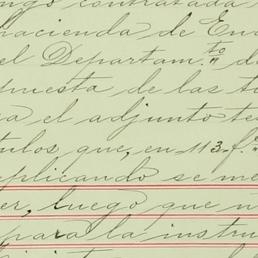 ngo contratada
hacienda de En
el Departam.to d
puesta de las t
a el adjunto tes
tulos que, en 113 f.s
plicando se me
er, luego que
para la instru